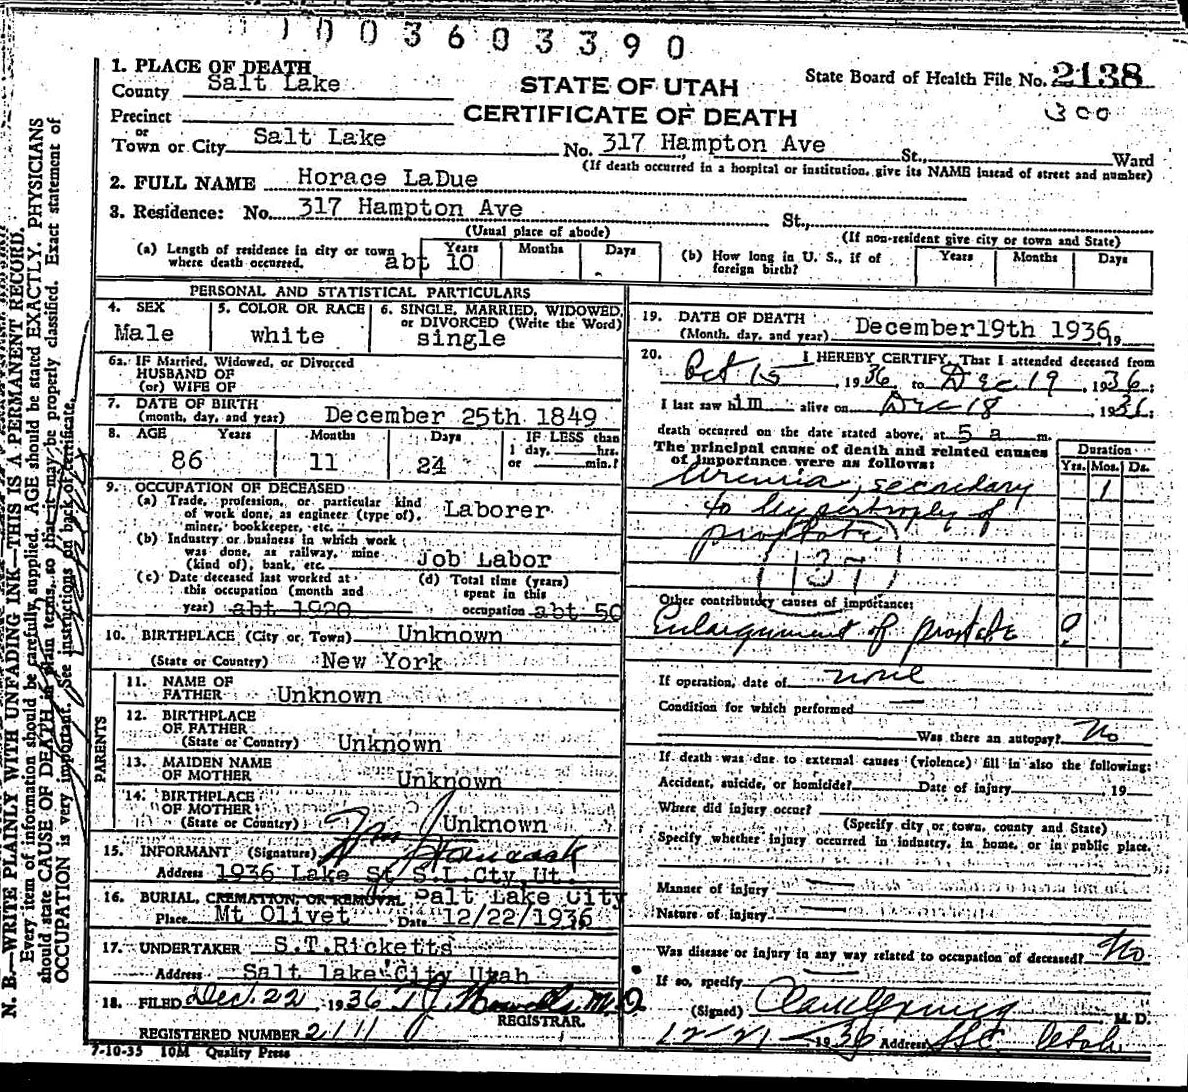 1003603390
1. PLACE OF DEATH
County Salt Lake
STATE OF UTAH
CERTIFICATE OF DEATH
State Board of Health File No. 2138
300
Precinct
or
Town or City Salt Lake No. 317 Hampton Ave St., Ward
(If death occurred in a hospital or institution, give its NAME instead of street and number)
2. FULL NAME Horace LaDue
3. Residence: No. 317 Hampton Ave St.,
(Usual place of abode) (If non-resident give city or town and State)
(a) Length of residence in city or town where death occurred. abt 10 Years Months Days
(b) How long in U. S., if of foreign birth? Years Months Days
PERSONAL AND STATISTICAL PARTICULARS
4. SEX
Male
5. COLOR OR RACE
white
6. SINGLE, MARRIED, WIDOWED, or DIVORCED (Write the Word)
single
6a. IF Married, Widowed, or Divorced
HUSBAND OF
(or) WIFE OF
7. DATE OF BIRTH
(month, day, and year) December 25th 1849
8. AGE Years Months Days IF LESS than
1 day, hrs.
or min.?
86 11 24
9. OCCUPATION OF DECEASED
(a) Trade, profession, or particular kind
of work done, as engineer (type of),
miner, bookkeeper, etc. Laborer
(b) Industry or business in which work
was done, as railway, mine
(kind of), bank, etc. Job Labor
(c) Date deceased last worked at
this occupation (month and
year) abt 1920
(d) Total time (years)
spent in this
occupation abt 50
10. BIRTHPLACE (City or Town) Unknown
(State or Country) New York
PARENTS
11. NAME OF
FATHER Unknown
12. BIRTHPLACE
OF FATHER
(State or Country) Unknown
13. MAIDEN NAME
OF MOTHER Unknown
14. BIRTHPLACE
OF MOTHER
(State or Country) Unknown
15. INFORMANT (Signature) Hancock
Address 1936 Lake St. S.L.Cty,Ut.
16. BURIAL, CREMATION, OR REMOVAL Salt Lake City
Place Mt Olivet Date 12/22/1936
17. UNDERTAKER S.T.Ricketts
Address Salt lake City Utah
18. FILED Dec. 22, 1936 T J Howells M.D.
REGISTRAR.
REGISTERED NUMBER 2111
7-10-35 10M Quality Press
19. DATE OF DEATH
(Month, day, and year) December19th 1936, 19
20. I HEREBY CERTIFY, That I attended deceased from
Oct 15, 1936, to Dec 19, 1936;
I last saw him alive on Dec 18 1936;
death occurred on the date stated above, at 5 a m.
The principal cause of death and related causes
of importance were as follows:
Duration
Yrs. Mos. Ds.
Uremia, secondary 1
to hypertrophy of
prostate
137
Other contributory causes of importance:
Enlargement of prostate ?
If operation, date of none
Condition for which performed
Was there an autopsy? No
If death was due to external causes (violence) fill in also the following:
Accident, suicide, or homicide? Date of injury 19
Where did injury occur?
(Specify city or town, county and State)
Specify whether injury occurred in industry, in home, or in public place.
Manner of injury
Nature of injury
Was disease or injury in any way related to occupation of deceased? No
If so, specify
(Signed) M. D.
12-21-1936 Address SLC Utah
N. B.—WRITE PLAINLY WITH UNFADING INK—THIS IS A PERMANENT RECORD.
Every item of information should be carefully supplied. AGE should be stated EXACTLY. PHYSICIANS
should state CAUSE OF DEATH in plain terms, so that it may be properly classified. Exact statement of
OCCUPATION is very important. See instructions on back of certificate.